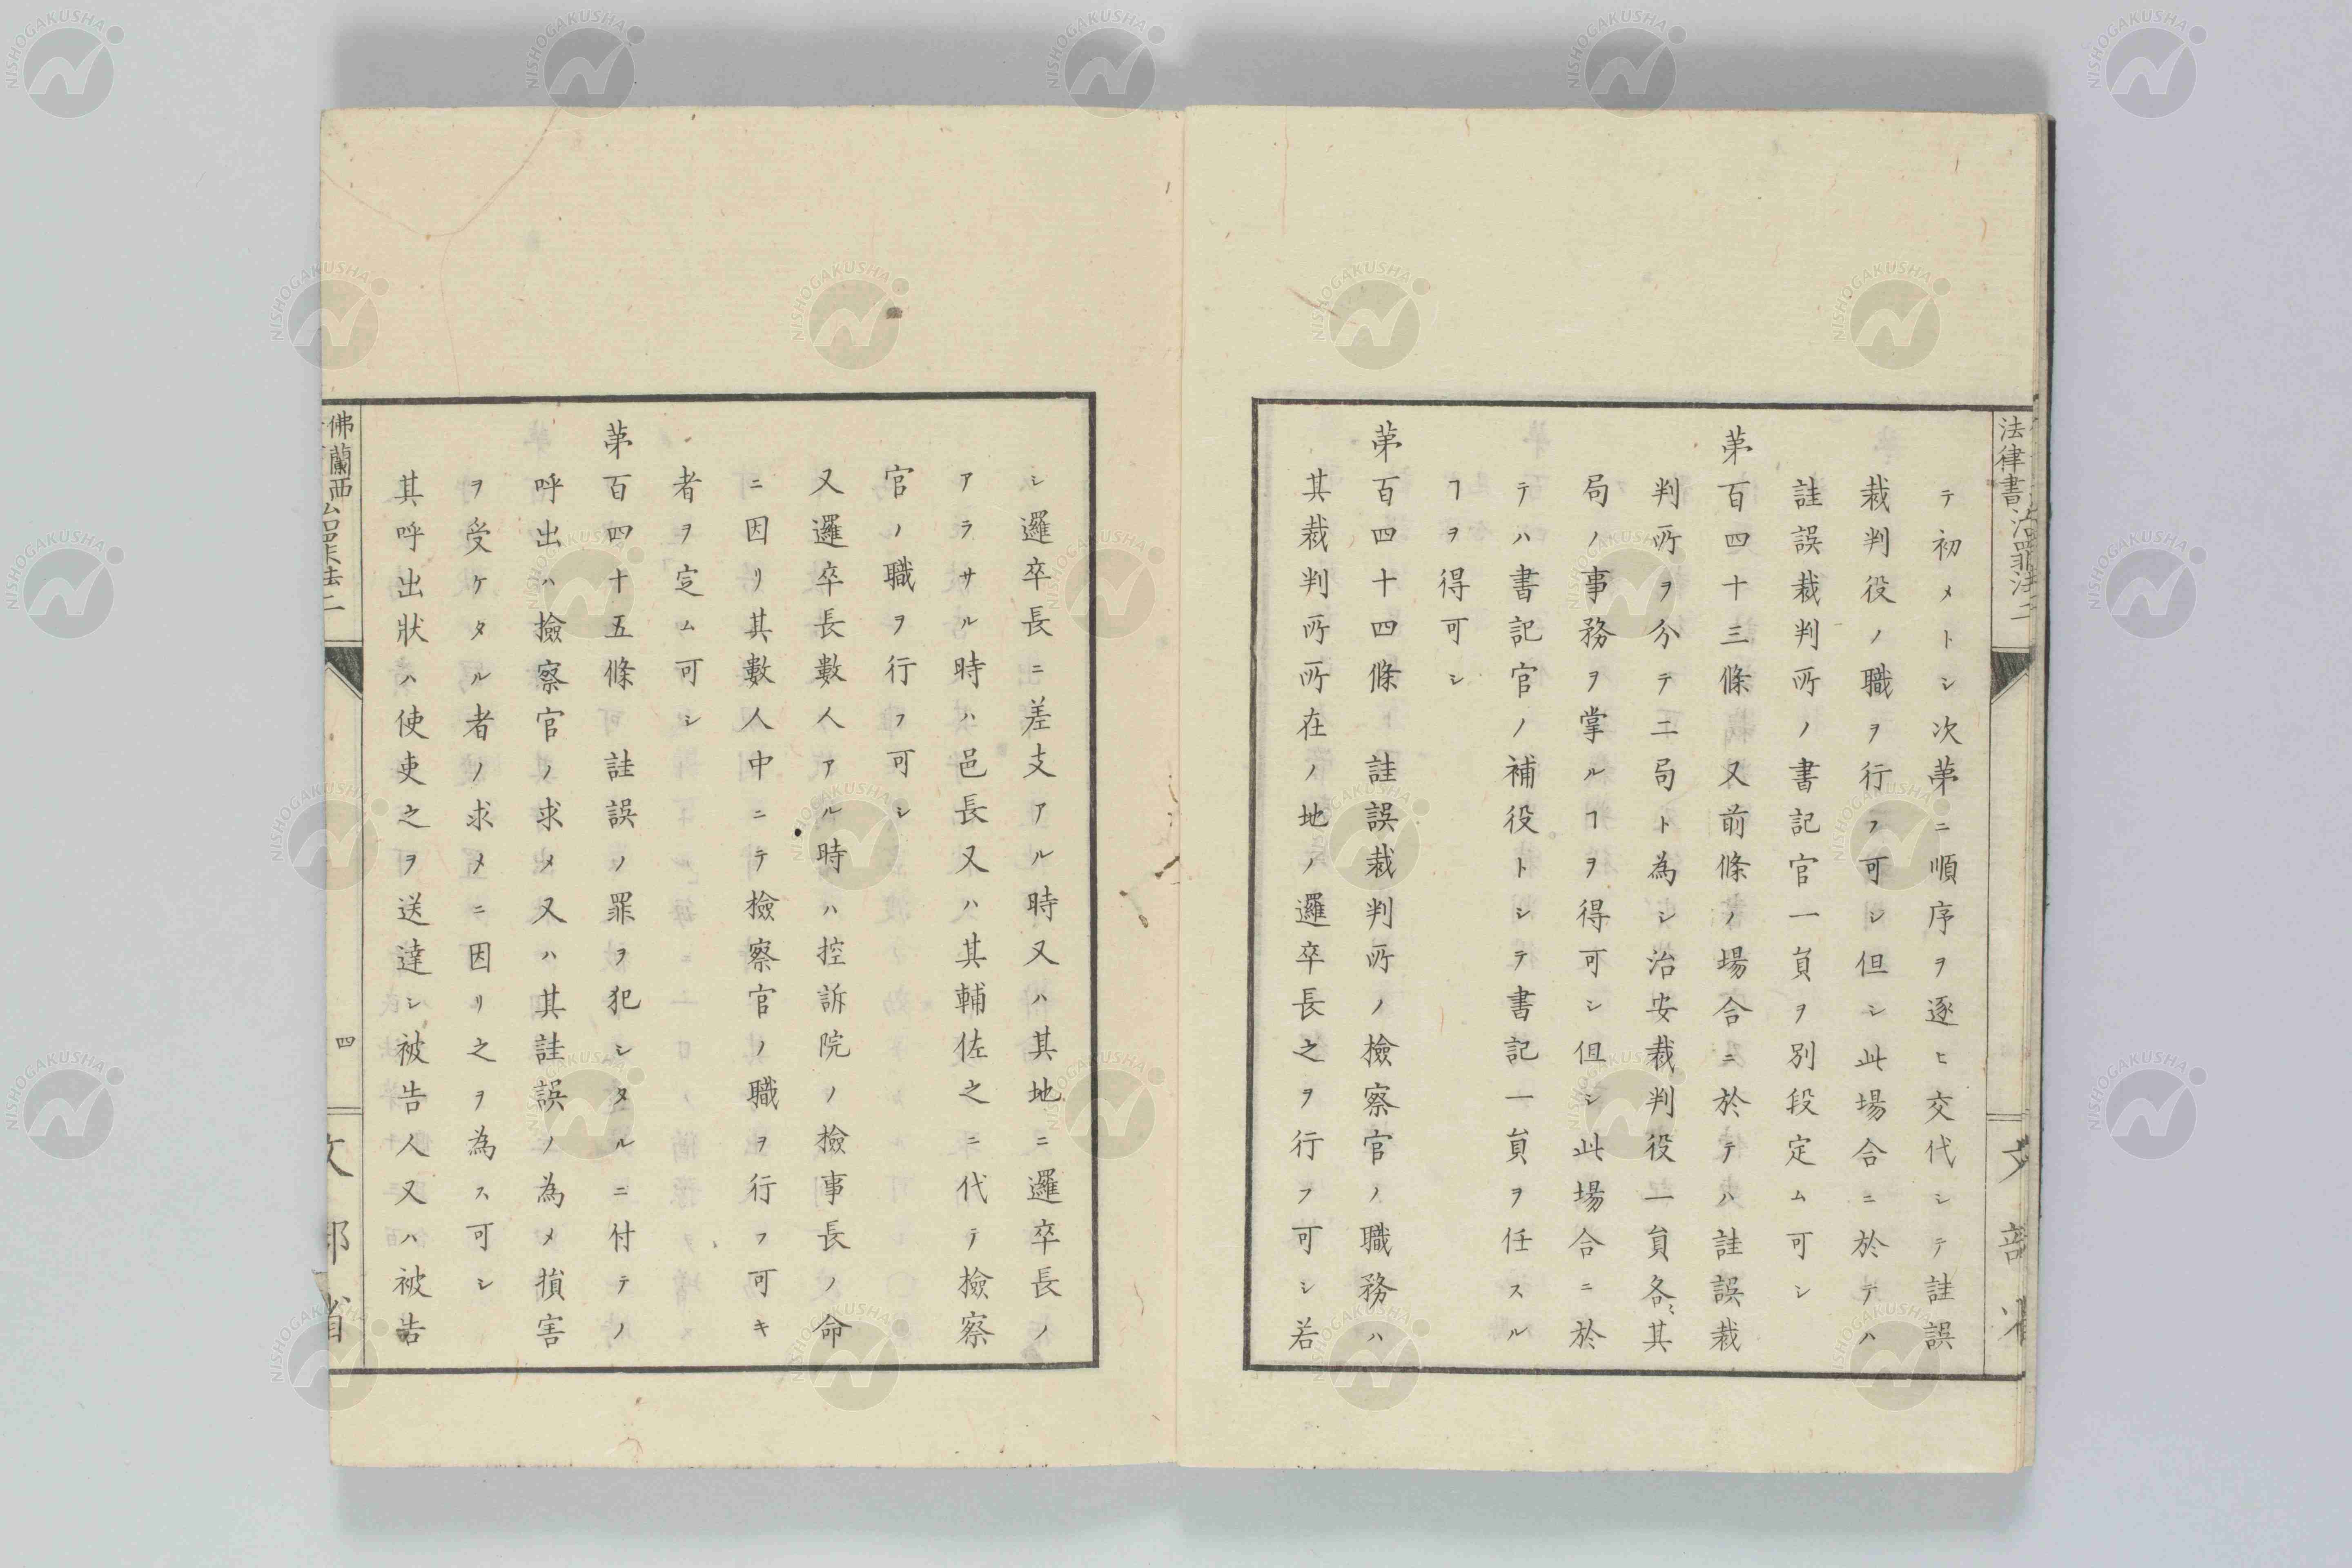 法律書治罪法二
テ初メトシ次第ニ順序ヲ逐ヒ交代シテ詿誤
裁判役ノ職ヲ行フ可シ但シ此場合ニ於テハ
詿誤裁判所ノ書記官一員ヲ別段定ム可シ
第百四十三條又前條ノ場合ニ於テハ詿誤裁
判所ヲ分テ二局ト為シ治安裁判役一員各〻其
局ノ事務ヲ掌ルヿヲ得可シ但シ此場合ニ於
テハ書記官ノ補役トシテ書記一員ヲ任スル
ヿヲ得可シ
第百四十四條 詿誤裁判所ノ檢察官ノ職務ハ
其裁判所所在ノ地ノ邏卒長之ヲ行フ可シ若
シ邏卒長ニ差支アル時又ハ其地ニ邏卒長ノ
アラサル時ハ邑長又ハ其輔佐之ニ代テ檢察
官ノ職ヲ行フ可シ
又邏卒長數人アル時ハ控訴院ノ檢事長ノ命
ニ因リ其數人中ニテ檢察官ノ職ヲ行フ可キ
者ヲ定ム可シ
第百四十五條 詿誤ノ罪ヲ犯シタルニ付テノ
呼出ハ檢察官ノ求メ又ハ其詿誤ノ為メ損害
ヲ受ケタル者ノ求メニ因リ之ヲ為ス可シ
其呼出狀ハ使吏之ヲ送達シ被告人又ハ被告
佛蘭西
四
NISHOGAKUSHA